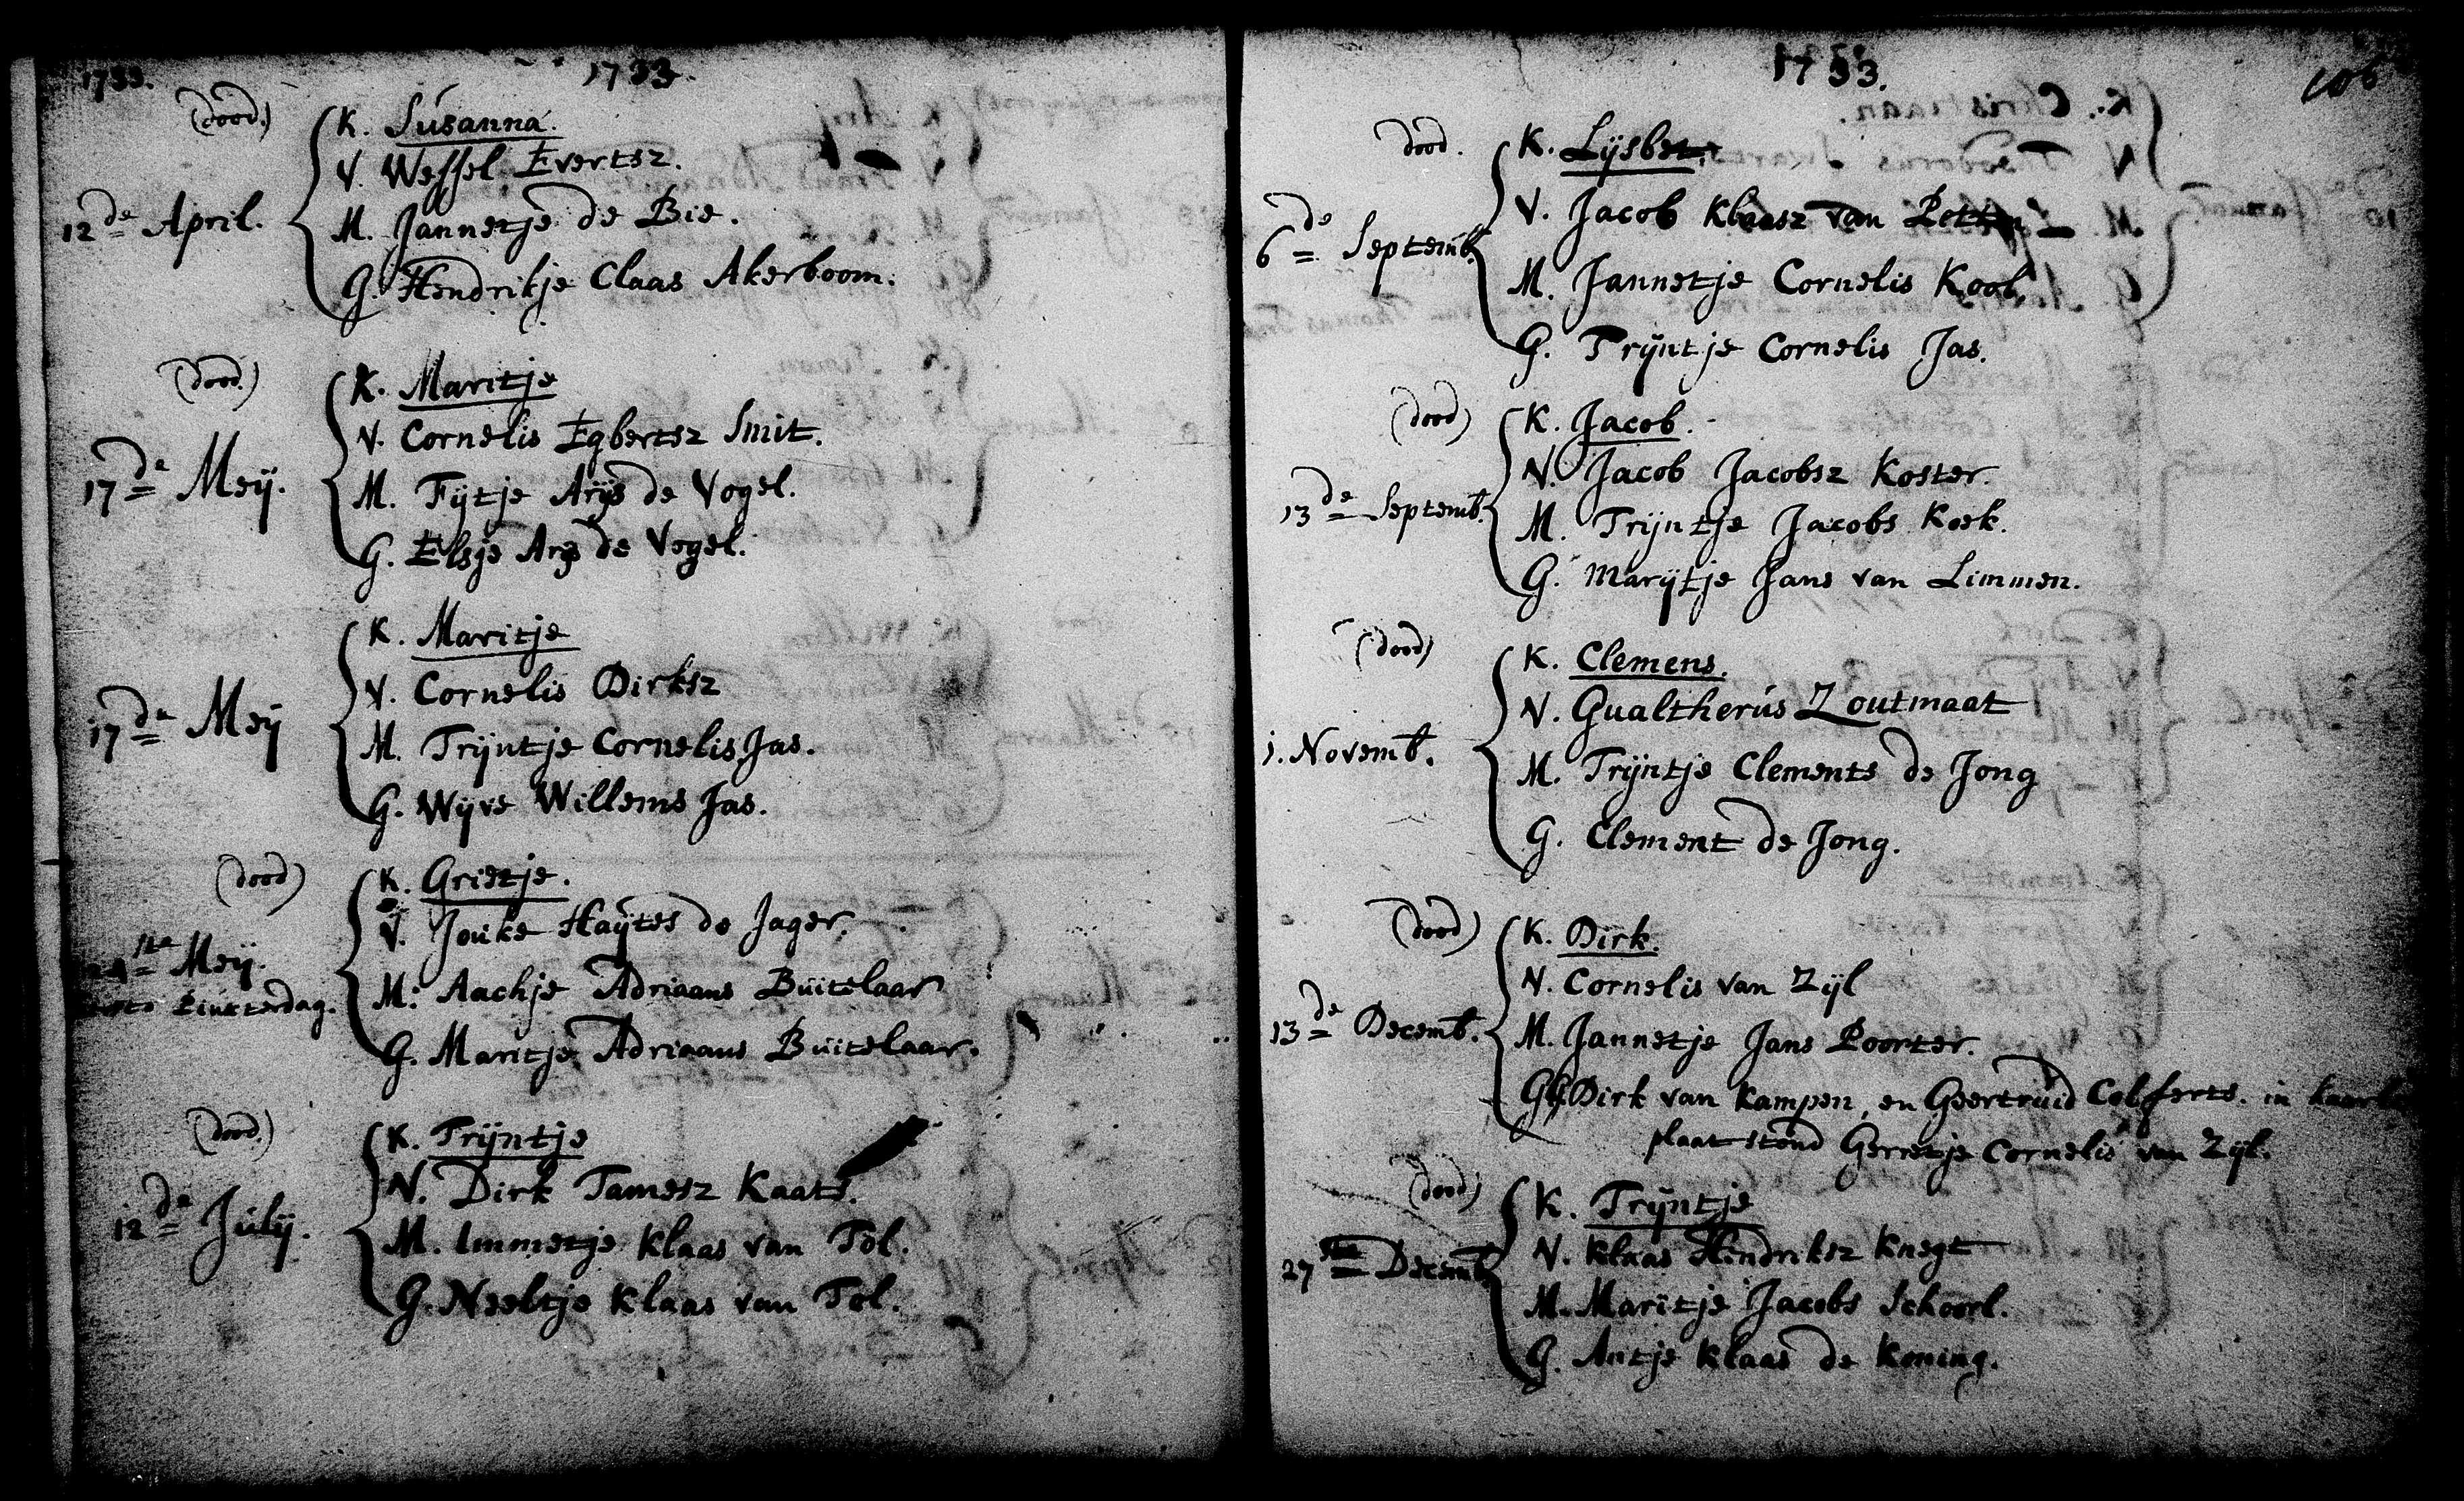 1733. 1733.
(dood.)
K. Susanna.
V. Wessel Evertsz.
12de April.
M. Jannetje de Bie.
G. Hendrikje Claas Akerboom.
(dood.)
K. Maritje
V. Cornelis Egbertsz Smit.
17de Meÿ.
M. Fijtje Arijs de Vogel.
G. Elsje Arijs de Vogel.
K. Maritje
V. Cornelis Dirksz
17de Meÿ
M. Trijntje Cornelis Jas.
G. Wijve Willems Jas.
(dood)
K. Grietje.
V. Jouke Haÿtes de Jager.
24ste Meÿ.
Pinksterdag.
M. Aachje Adriaans Buitelaar
G. Maritje Adriaans Buitelaar.
(dood.)
K. Trijntje
V. Dirk Tamesz Kaats.
12de Julÿ.
M. Immetje Klaas van Tol.
G. Neeltje Klaas van Tol.
1733. 106
dood.
K. Lijsbet.
V. Jacob Klaasz van Petten
6de Septemb.
M. Jannetje Cornelis Kool.
G. Trijntje Cornelis Jas.
(dood)
K. Jacob.
V. Jacob Jacobsz Koster.
13de Septemb.
M. Trijntje Jacobs Koek.
G. Marijtje Jans van Limmen.
(dood)
K. Clemens.
V. Gualtherus Zoutmaat
1. Novemb.
M. Trijntje Clements de Jong
G. Clement de Jong.
(dood)
K. Dirk.
V. Cornelis van Zijl
13de Decemb.
M. Jannetje Jans Poorter.
GG. Dirk van Kampen, en Geertruid Colferts. in haar
plaats stond Gerretje Cornelis van Zijl.
(dood)
K. Trijntje
V. Klaas Hendriksz Knegt
27ste Decemb.
M. Maritje Jacobs Schoorl.
G. Antje Klaas de Koning.